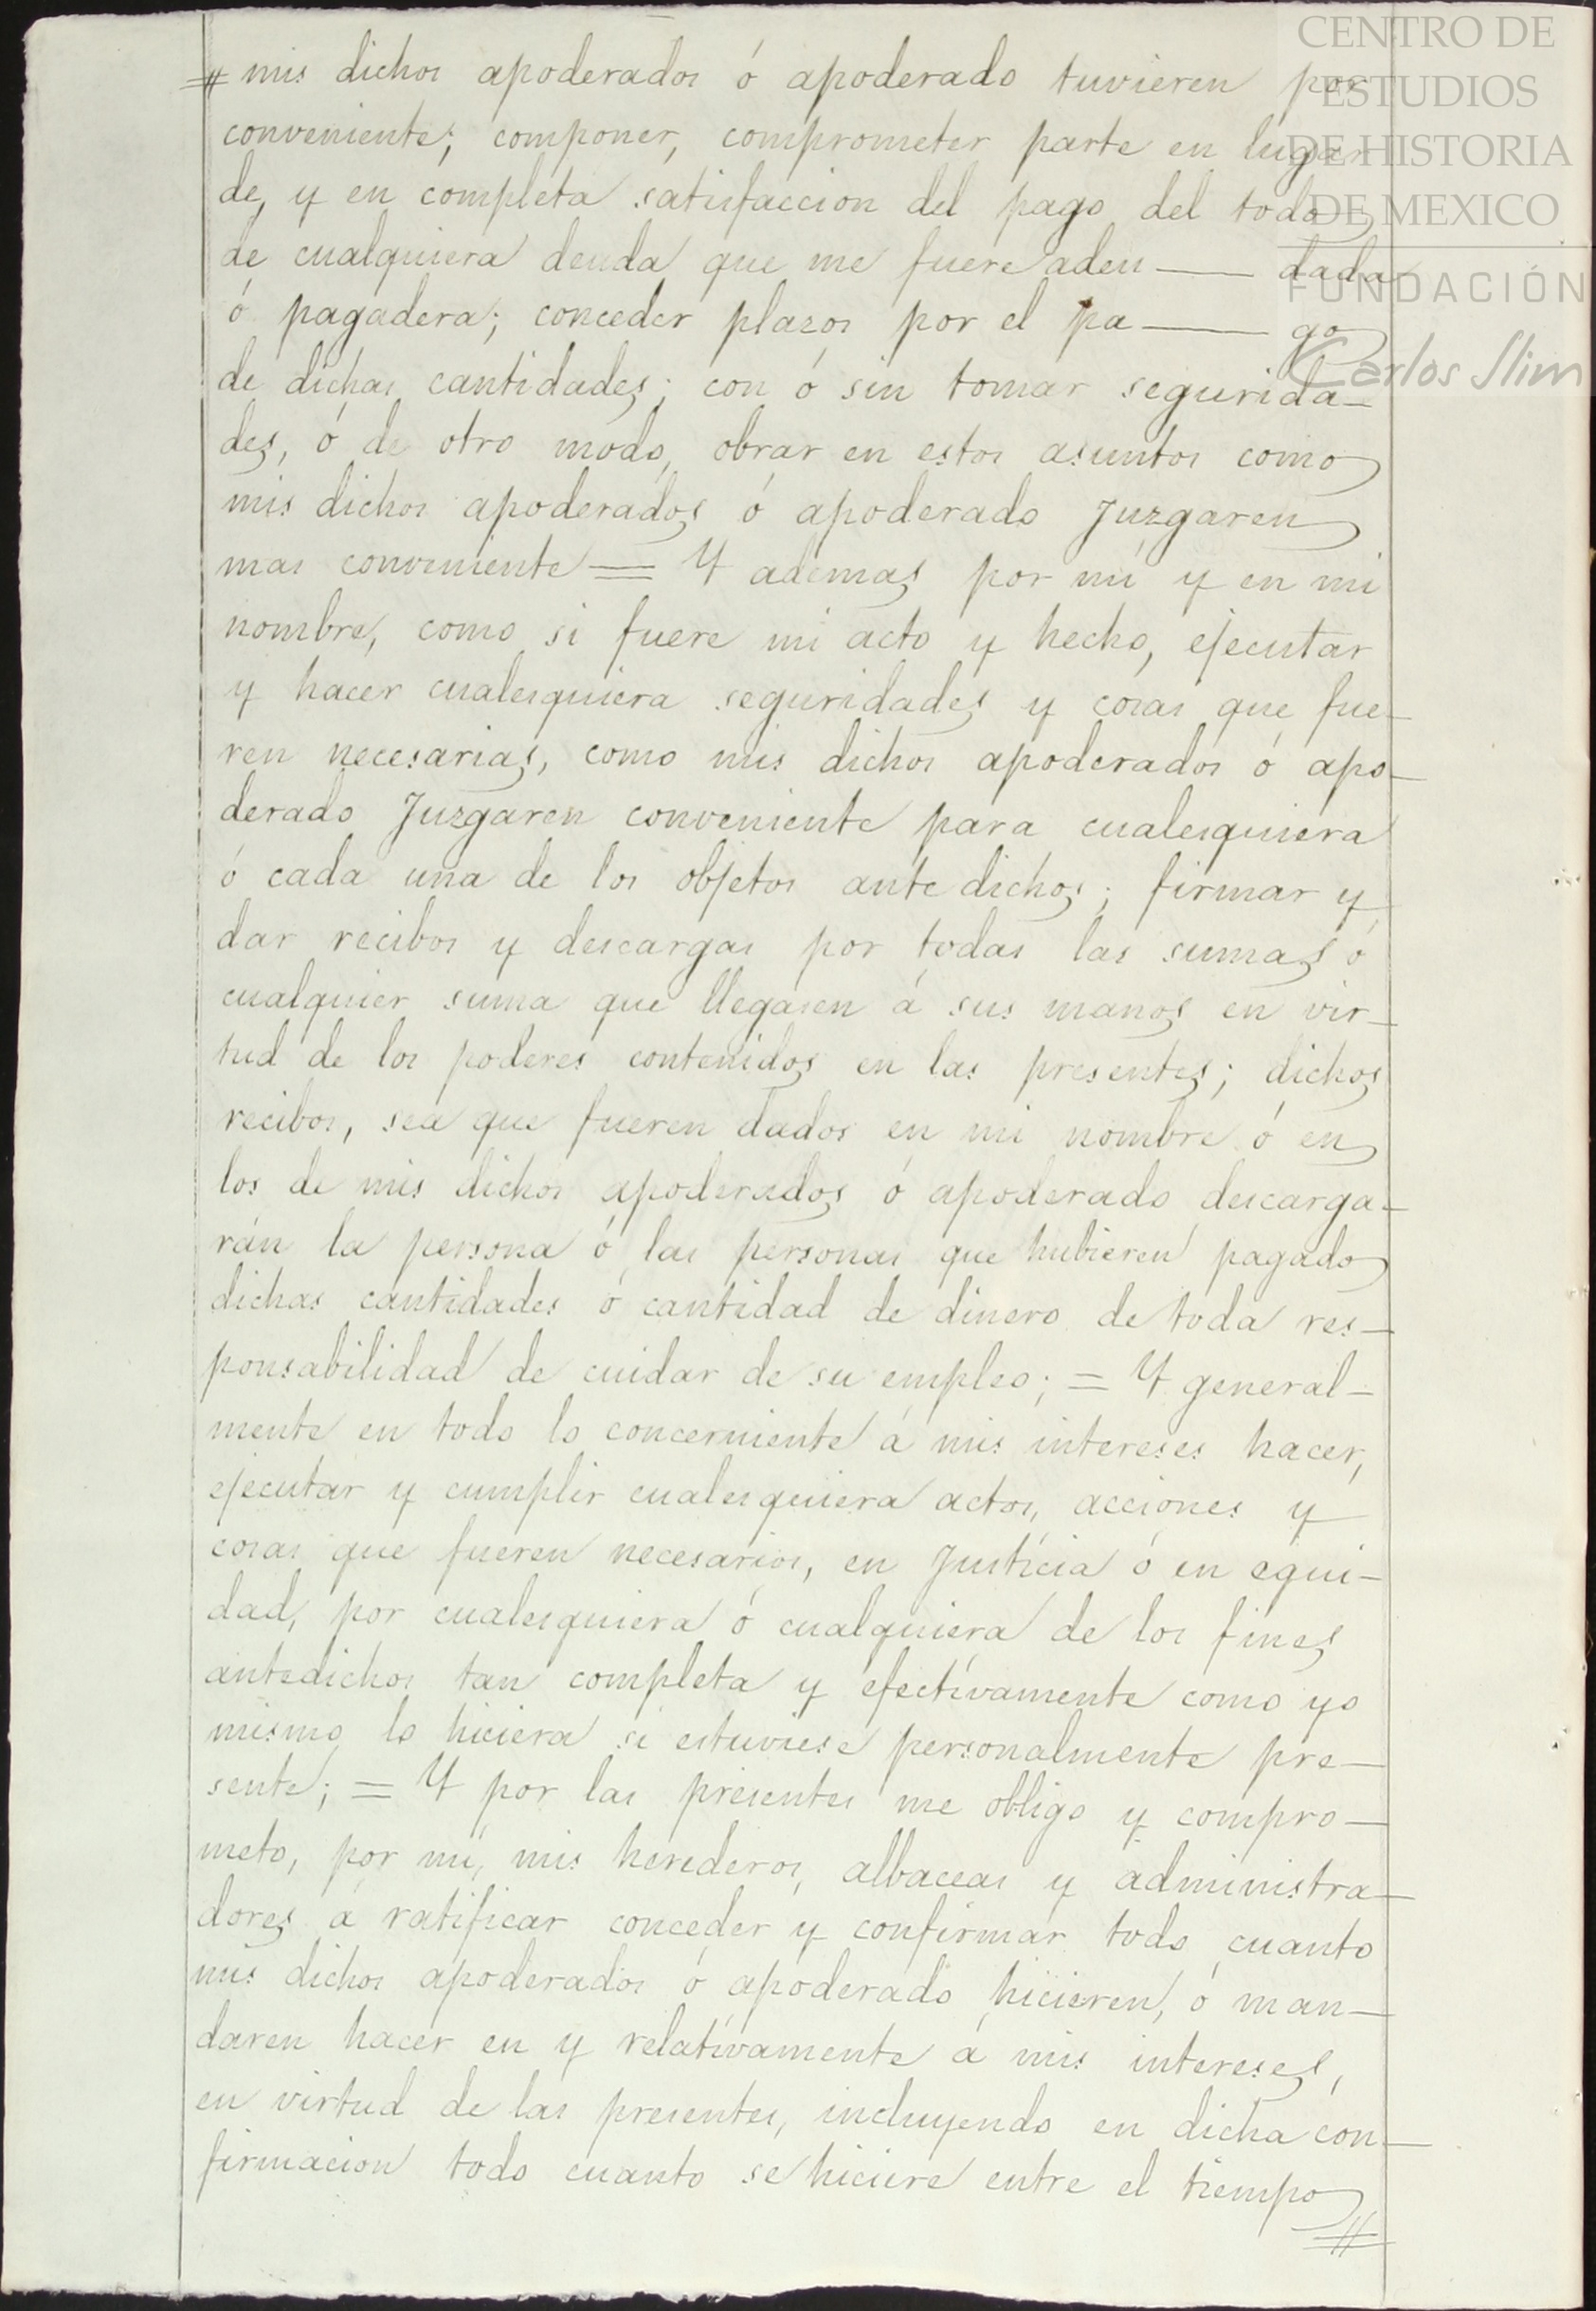 CENTRO DE
ESTUDIOS
DE HISTORIA
DE MEXICO
FUNDACIÓN
Carlos Slim
# mis dichos apoderados ó apoderado tuvieren por
conveniente; componer, comprometer parte en lugar
de, y en completa satisfaccion del pago del todo
de cualquiera deuda que me fuere adeu — dada
ó pagadera; conceder plazos por el pa — go
de dichas cantidades; con ó sin tomar segurida-
des, ó de otro modo, obrar en estos asuntos como
mis dichos apoderados ó apoderado Juzgaren
mas conveniente = Y ademas por mí y en mi
nombre, como si fuere mi acto y hecho, ejecutar
y hacer cualesquiera seguridades y cosas que fue-
ren necesarias, como mis dichos apoderados ó apo-
derado Juzgaren conveniente para cualesquiera
ó cada una de los objetos ante dichos; firmar y
dar recibos y descargas por todas las sumas ó
cualquier suma que llegasen á sus manos en vir-
tud de los poderes contenidos en las presentes; dichos
recibos, sea que fueren dados en mi nombre ó en
los de mis dichos apoderados ó apoderado descarga-
rán la persona ó las personas que hubieren pagado
dichas cantidades ó cantidad de dinero de toda res-
ponsabilidad de cuidar de su empleo; = Y general-
mente en todo lo concerniente á mis intereses hacer,
ejecutar y cumplir cualesquiera actos, acciones y
cosas que fueren necesarios, en Justicia ó en equi-
dad, por cualesquiera ó cualquiera de los fines
antedichos tan completa y efectivamente como yo
mismo lo hiciera si estuviese personalmente pre-
sente; = Y por las presentes me obligo y compro-
meto, por mí, mis herederos, albaceas y administra-
dores á ratificar conceder y confirmar todo cuanto
mis dichos apoderados ó apoderado hicieren, ó man-
daren hacer en y relativamente á mis intereses,
en virtud de las presentes, incluyendo en dicha con-
firmacion todo cuanto se hiciere entre el tiempo
#